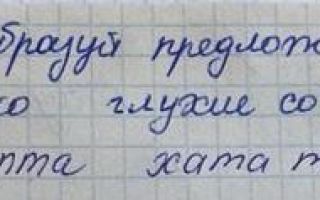 бразуй предлож
ко глухие со
пта хата т